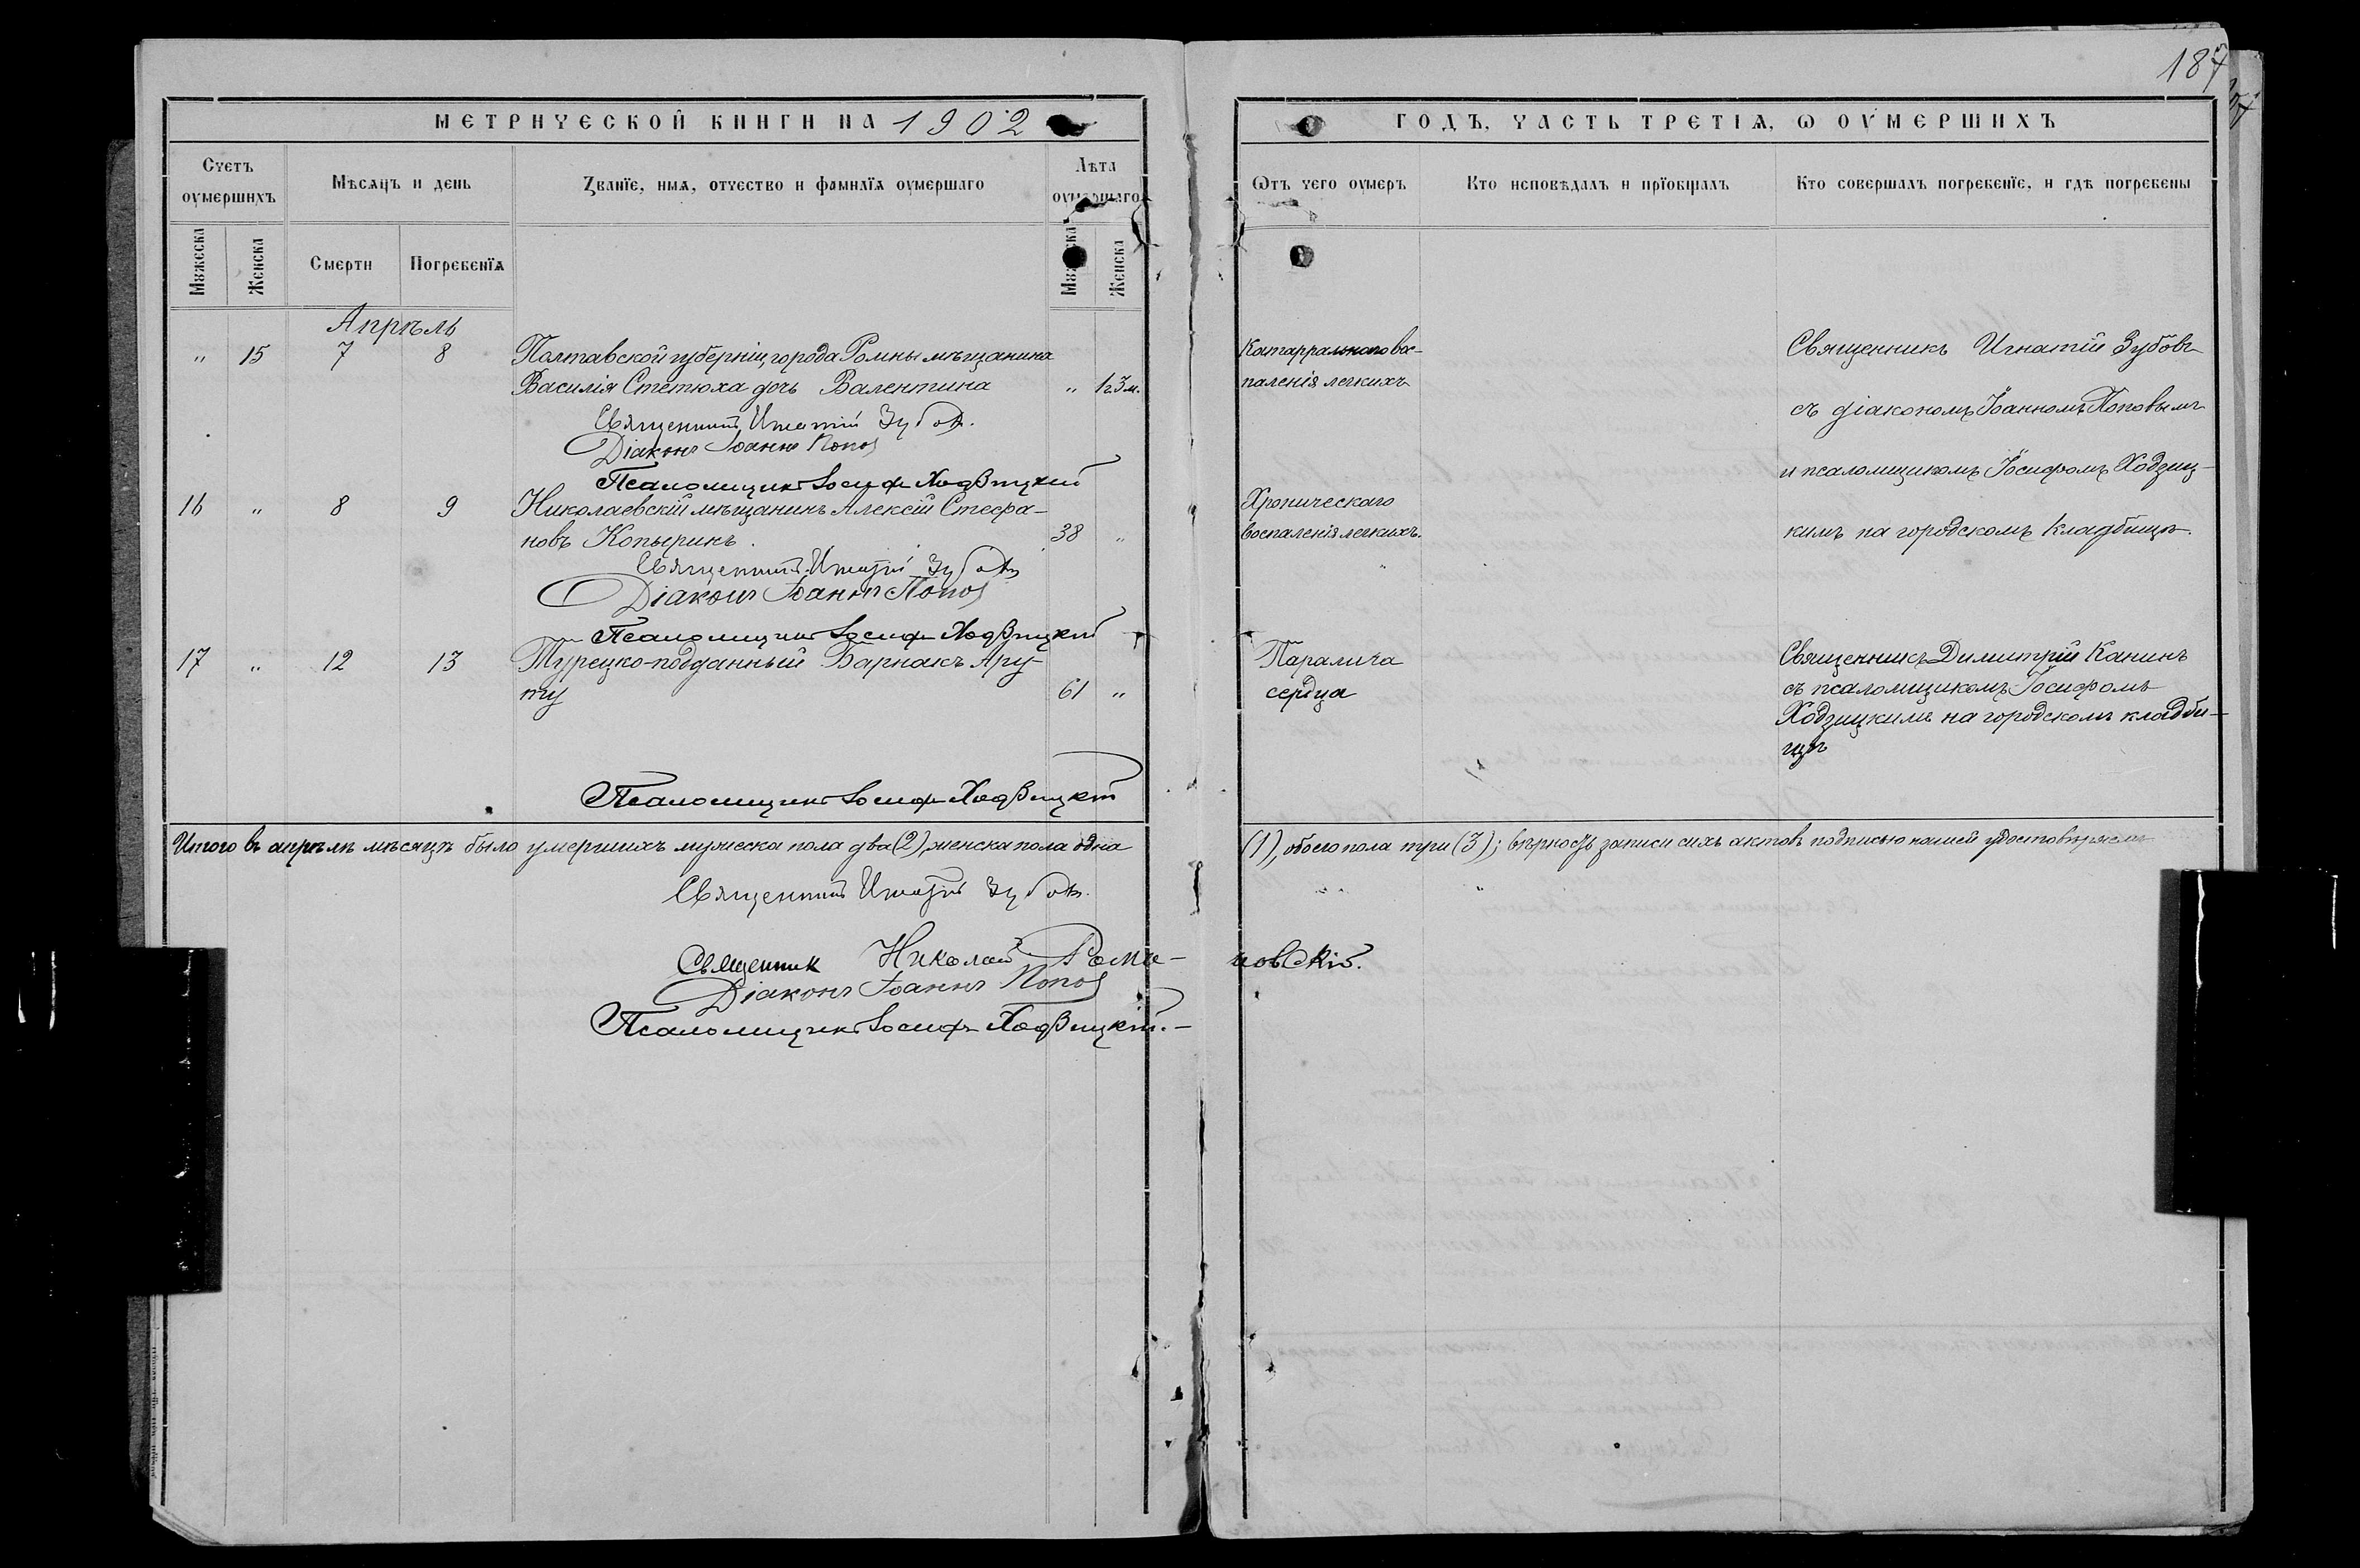 187
МЕТРИЧЕСКОЙ КНИГИ НА 1902
ГОДЪ, ЧАСТЬ ТРЕТІѦ, Ѡ ОУМЕРШИХЪ
Счетъ оумершихъ
Мѣсѧцъ и день
Званїе, имѧ, отчество и фамилїѧ оумершаго
Лѣта оумершаго
Ѿтъ чего оумеръ
Кто исповѣдалъ и прїобщалъ
Кто совершалъ погребенїе, и гдѣ погребены
Мꙋжеска
Женска
Смерти
Погребенїѧ
Мꙋжеска
Женска
Апрѣль
" 15 7 8 Полтавской губерніи, города Ромны мѣщанина
Василія Стетюха дочь Валентина " 1г.3м.
Священникъ Игнатій Зубовъ.
Діаконъ Іоаннъ Поповъ
Псаломщикъ Іосифъ Ходзицкій
Катарральнаго вос-
паленія легкихъ
Священникъ Игнатій Зубовъ
съ діакономъ Іоанномъ Поповымъ
и псаломщикомъ Іосифомъ Ходзиц-
кимъ на городскомъ кладбищѣ.
16 " 8 9 Николаевскій мѣщанинъ Алексій Стефа-
новъ Копыринъ. 38 "
Священникъ Игнатій Зубовъ
Діаконъ Іоаннъ Поповъ
Псаломщикъ Іосифъ Ходзицкій
Хроническаго
воспаленія легкихъ.
17 " 12 13 Турецко-подданный Барнакъ Ару-
ту 61 "
Псаломщикъ Іосифъ Ходзицкій
Паралича
сердца
Священникъ Димитрій Канинъ
съ псаломщикомъ Іосифомъ
Ходзицкимъ на городскомъ кладби-
щѣ
Итого въ апрѣлѣ мѣсяцѣ было умершихъ мужеска пола два (2), женска пола одна
(1), обоего пола три (3); вѣрность записи сихъ актовъ подписью нашей удостовѣряемъ
Священникъ Игнатій Зубовъ.
Священникъ Николай Рома-
новскій.
Діаконъ Іоаннъ Поповъ
Псаломщикъ Іосифъ Ходзицкій.-